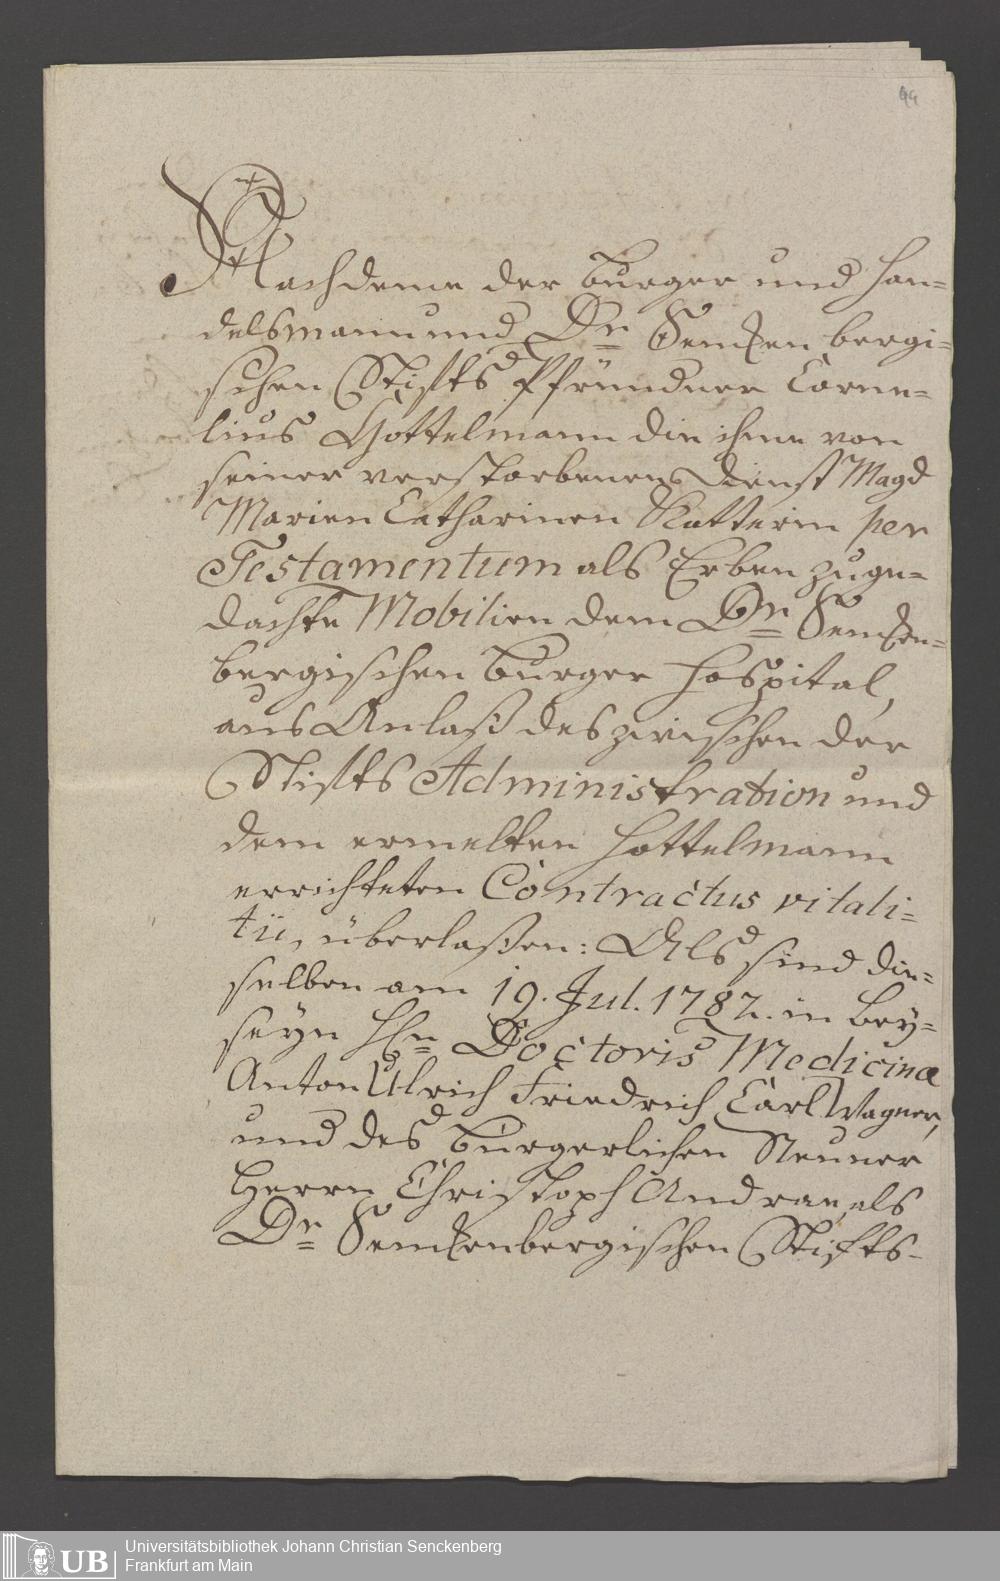 99
Nachdeme der burger und Han=
delsmann und Dr. Senckenbergi=
schen Stiffts Pfründner Corne=
lius Hottelmann die ihme von
seiner verstorbenen Dienst Magd
Marien Catharinen Katterin per
Testamentum als Erben zuge=
dachte Mobilien dem Dr. Sencken=
bergischen burger Hospital,
aus Anlaß des zwischen der
Stiffts Administration und
dem ermelten Hottelmann
errichteten Contractus vitali=
tii, überlaßen: Als sind die=
selben am 19. Jul. 1787. in bey=
seyn Hn. Doctoris Medicinæ
Anton Ulrich Friedrich Carl Wagner,
und des bürgerlichen Neuner
Herrn Christoph Andreae, als
Dr. Senckenbergischen Stiffts-
UB
Universitätsbibliothek Johann Christian Senckenberg
Frankfurt am Main